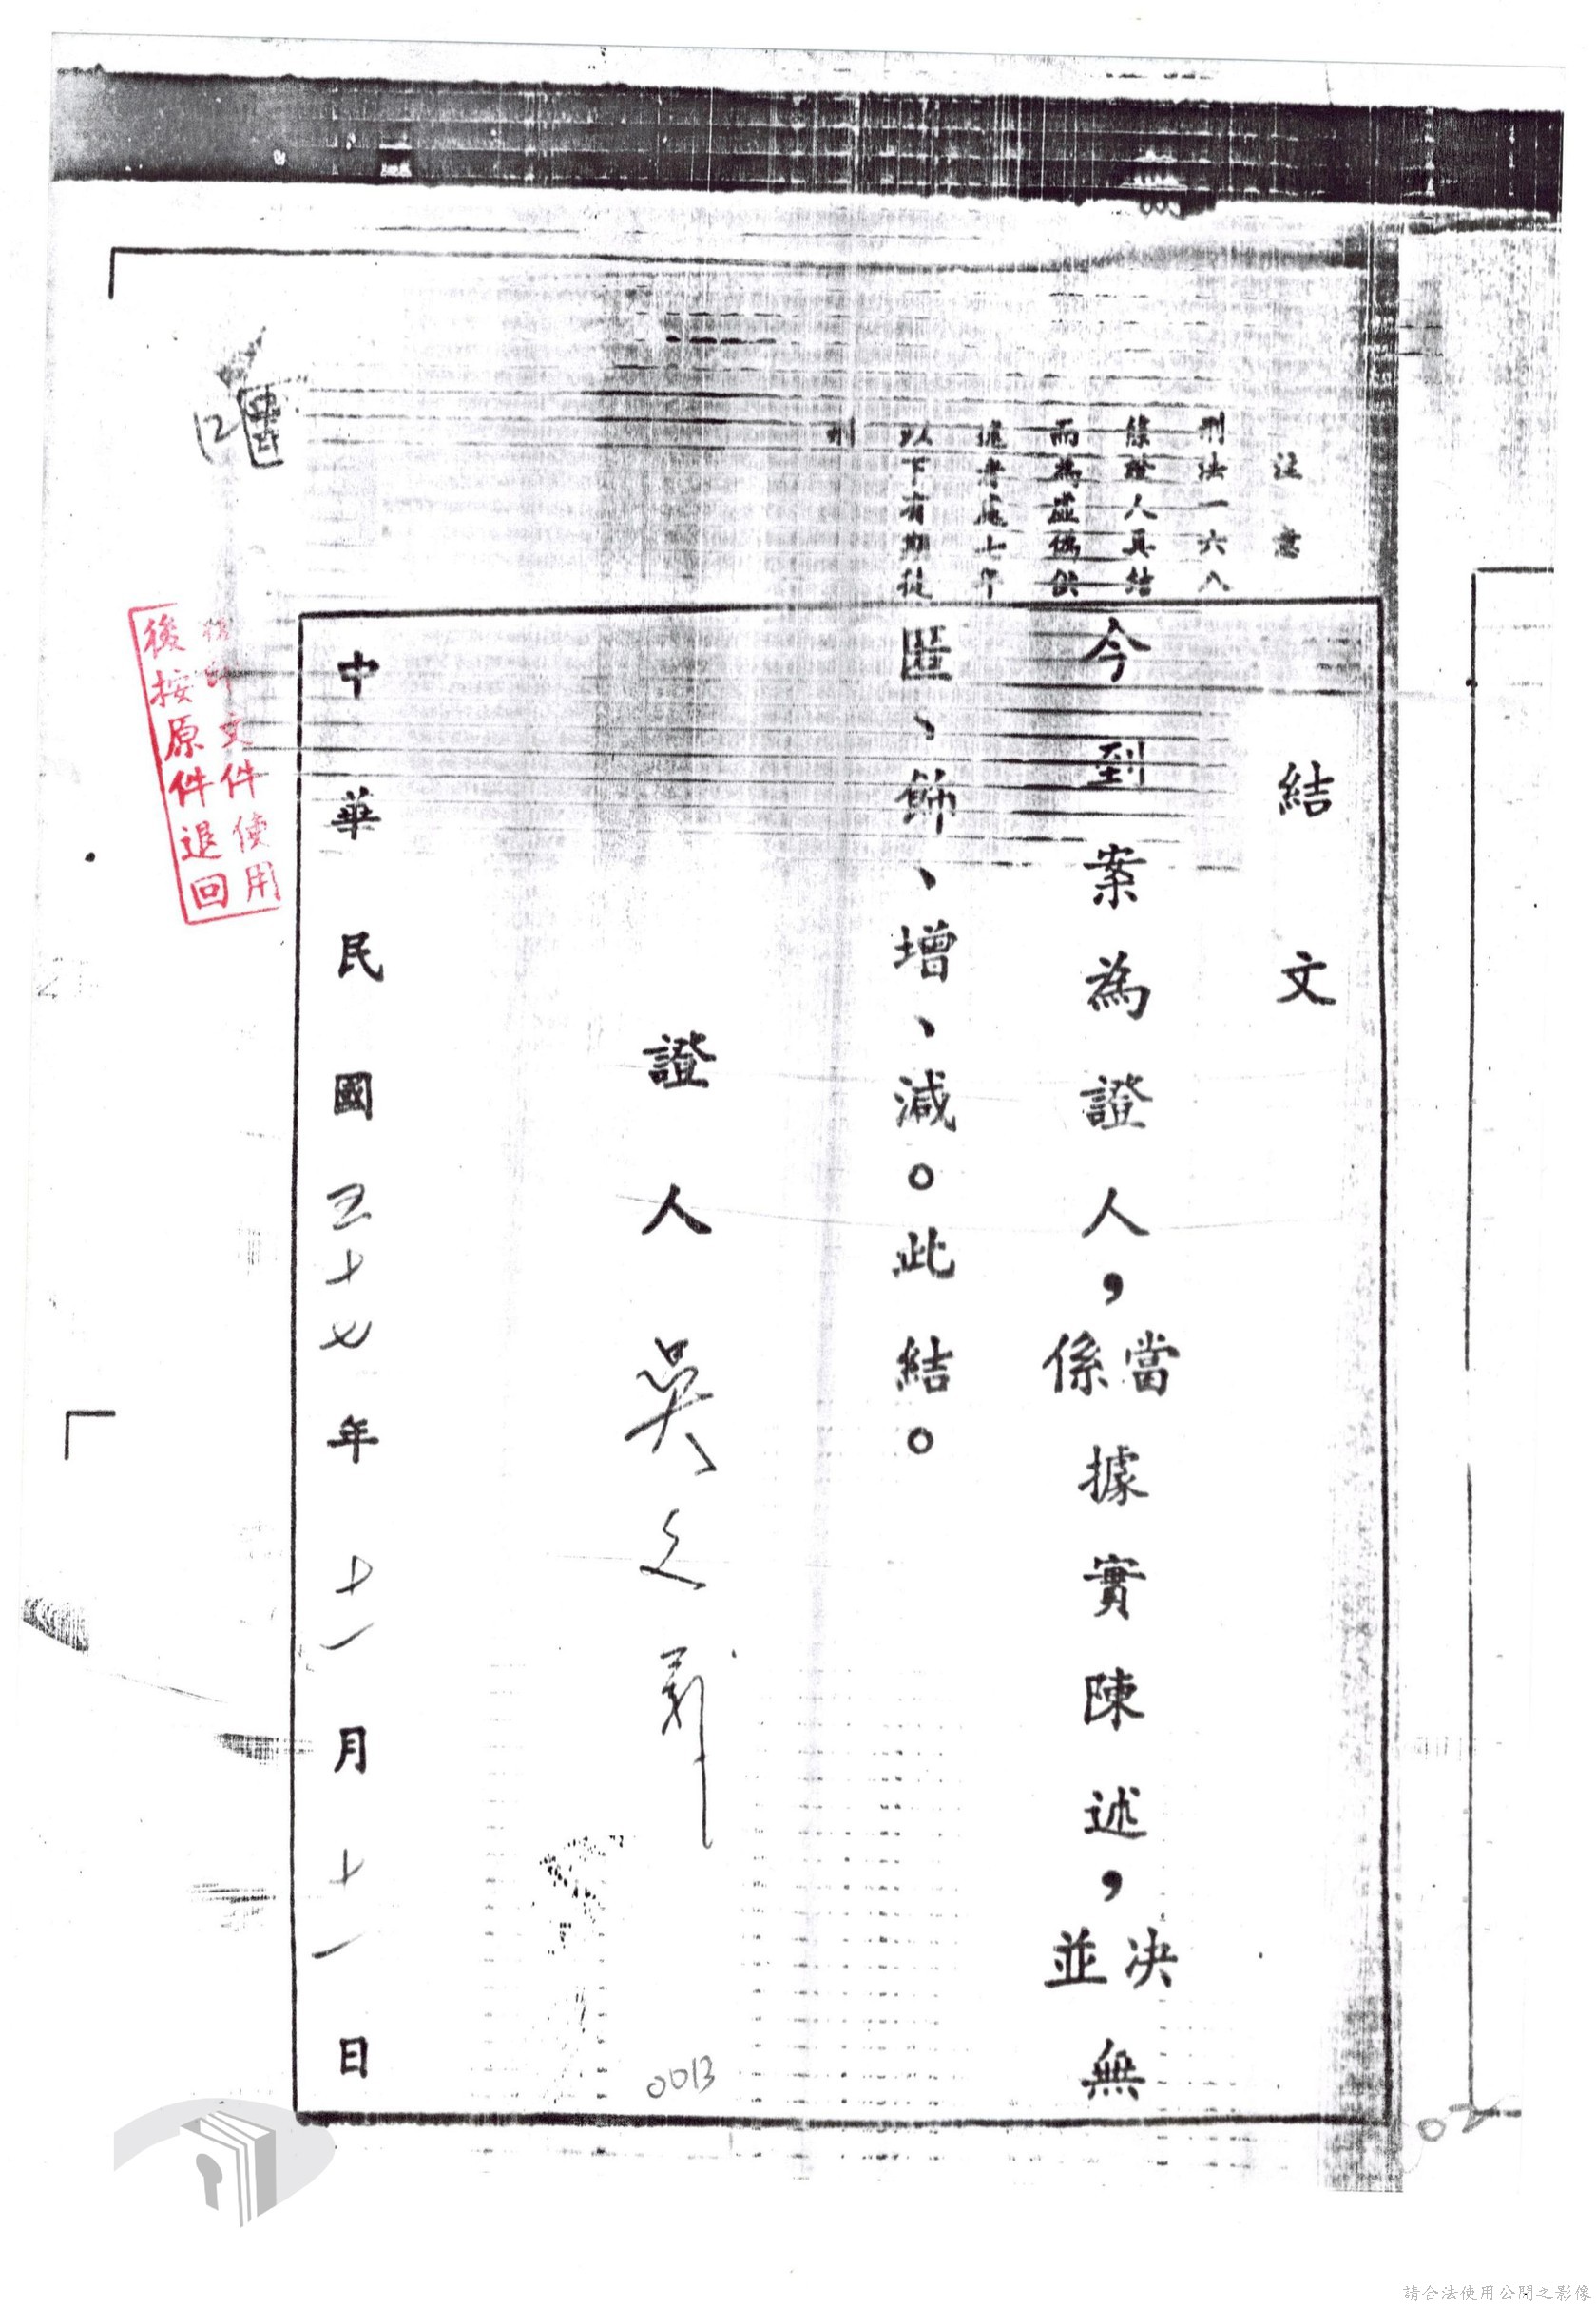 注意
刑法一六八
條證人具結
而為虛偽供
述者處七年
以下有期徒
刑
結文
今到案為證人，當係據實陳述，決並無
匿、飾、增、減。此結。
證人 吳文
中華民國五十七年十一月十一日
文件使用
後按原件退回
12
0013
02
請合法使用公開之影像